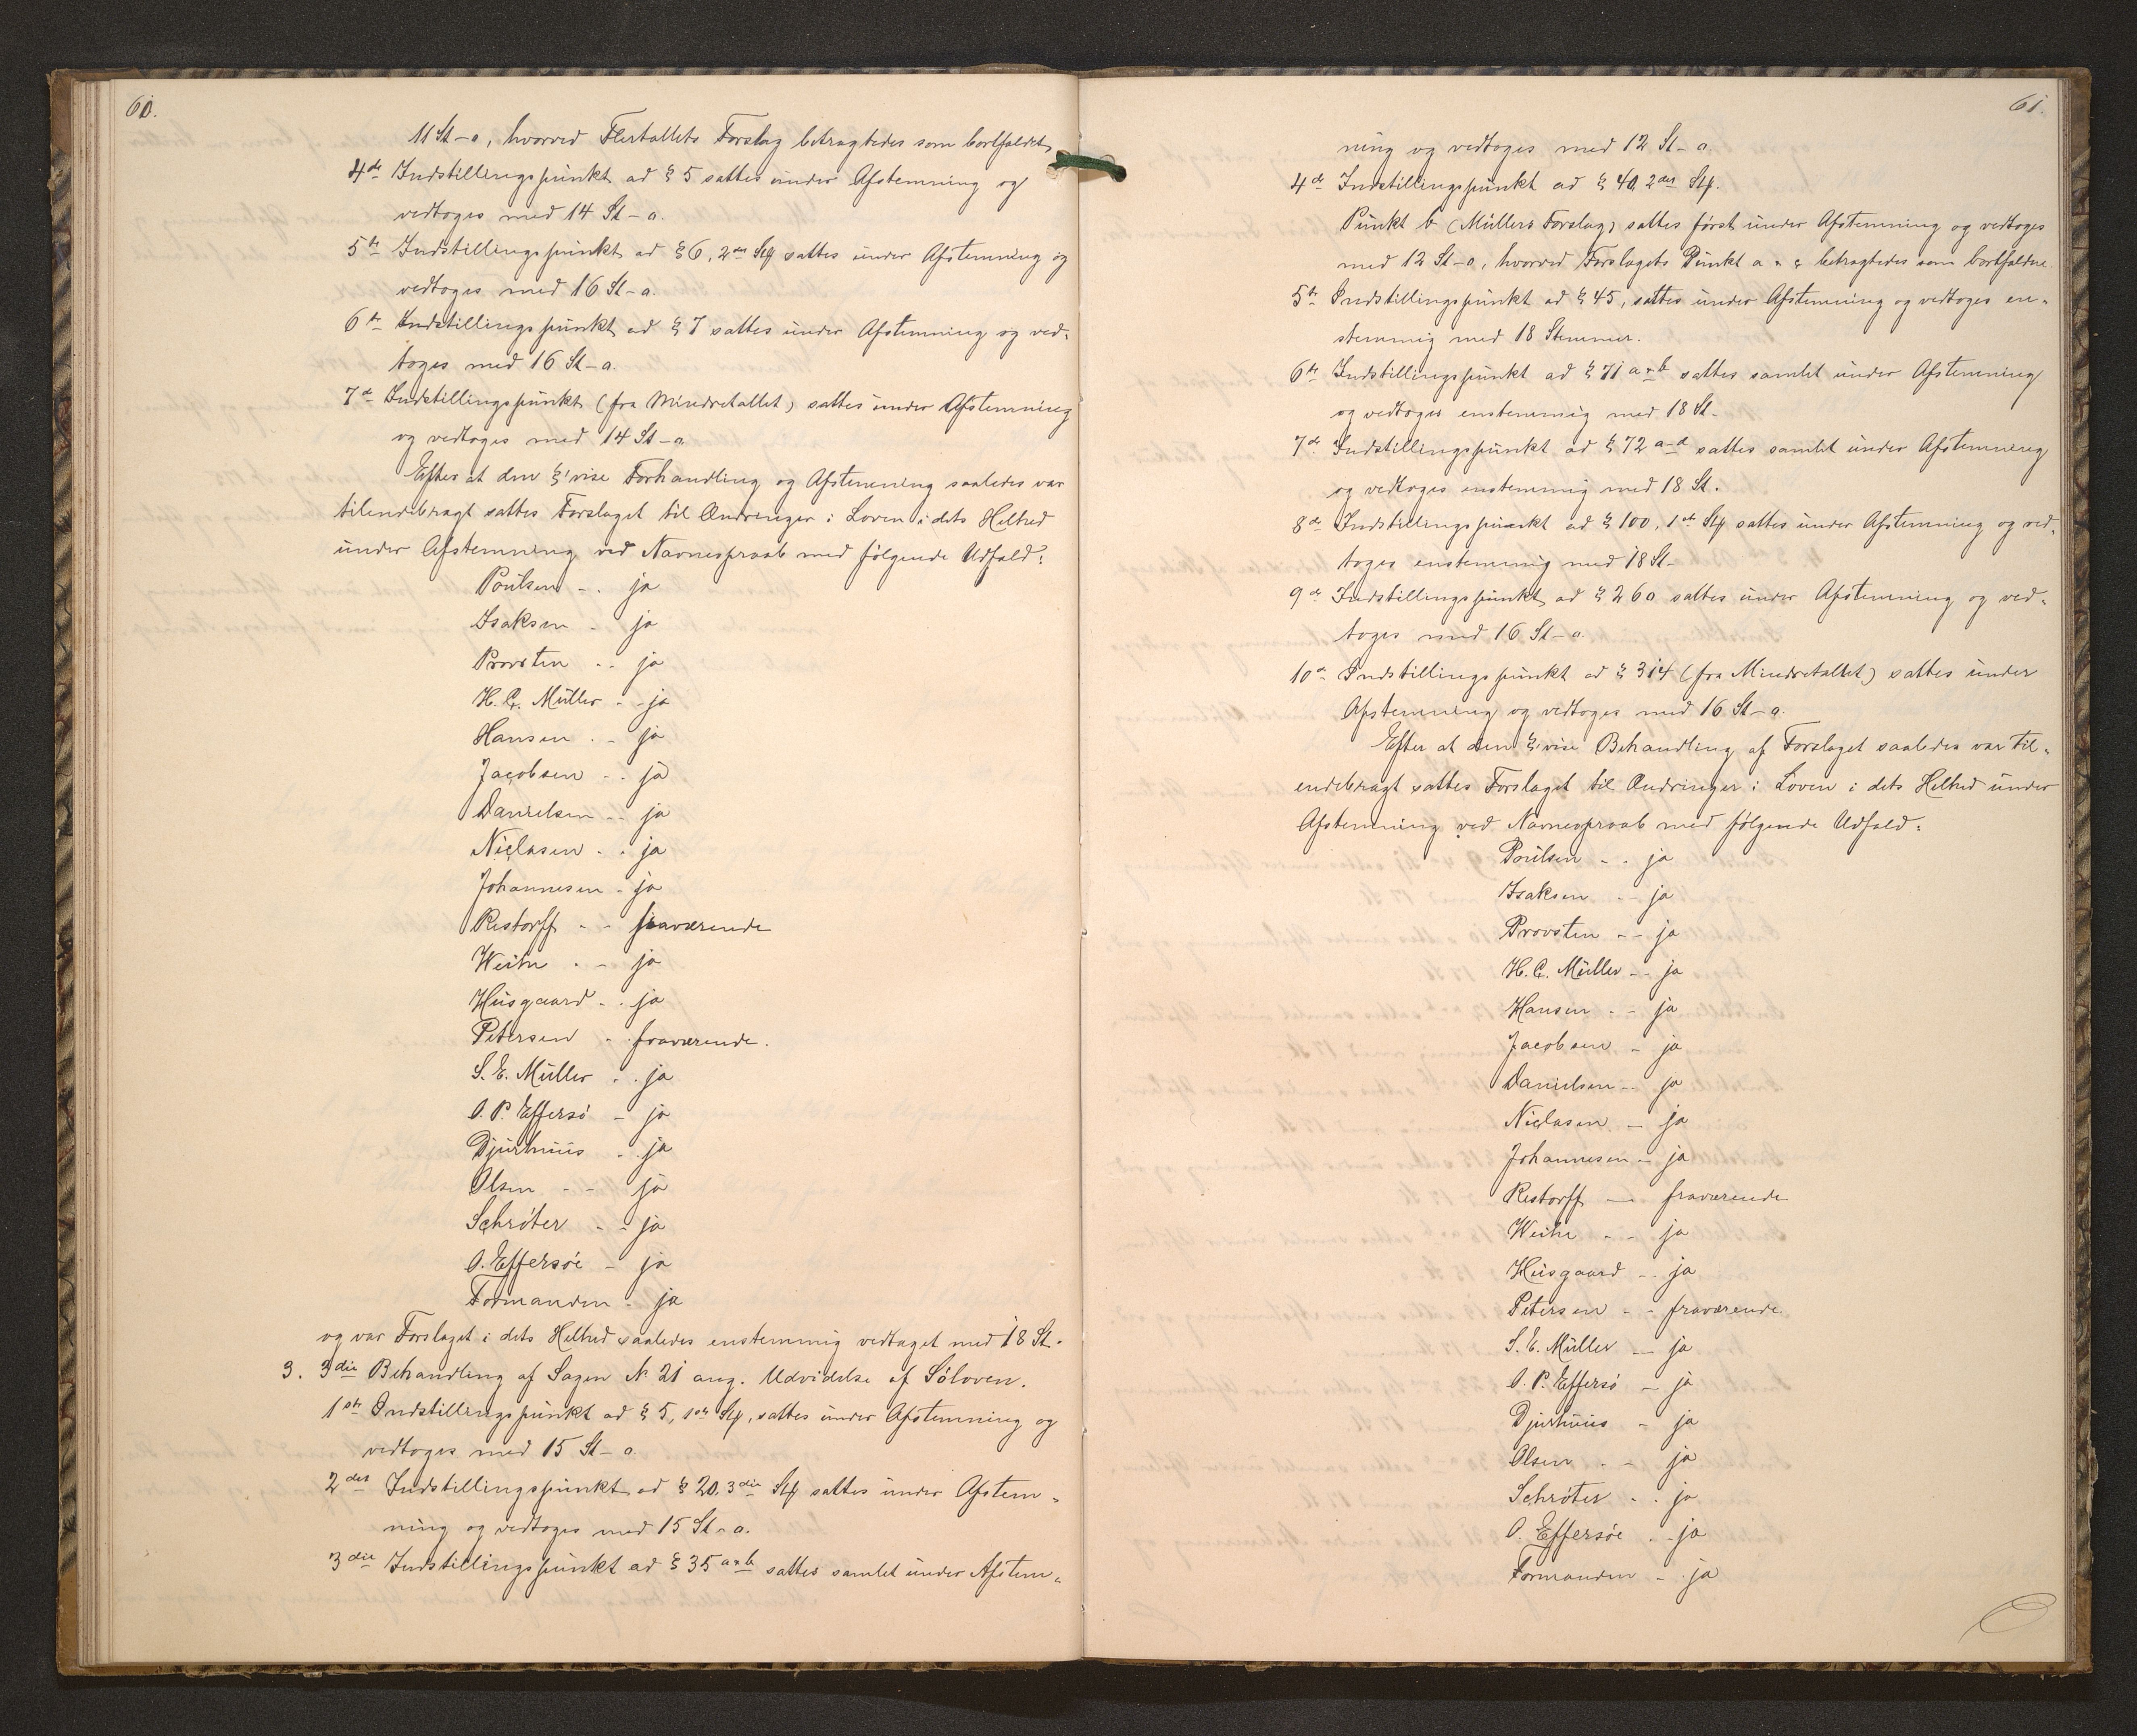 60.
11 St-0, hvorved Flertallets Forslag betragtedes som bortfaldet.
4de Indstillingspunkt ad § 5 sattes under Afstemning og
vedtoges med 14 St-0.
5te Indstillingspunkt ad § 6, 2det Stk sattes under Afstemning og
vedtoges med 16 St-0.
6te Indstillingspunkt ad § 7 sattes under Afstemning og ved-
toges med 16 St-0.
7de Indstillingspunkt (fra Mindretallet) sattes under Afstemning
og vedtoges med 14 St-0
Efter at den §'vise Forhandling og Afstemning saaledes var
tilendebragt sattes Forslaget til Ændringer i Loven i dets Helhed
under Afstemning ved Navneopraab med følgende Udfald:
Poulsen -. ja
Isaksen - ja
Provsten -. ja
H. C. Müller - - ja
Hansen . - ja
Jacobsen -. ja
Danielsen -. ja
Niclasen . . ja
Johannesen - ja
Restorff - - fraværende
Weihe . - ja
Husgaard - . ja
Petersen - . fraværende.
S. E. Müller . . ja
O. P. Effersö - ja
Djurhuus . . ja
Olsen - - ja
Schröter - - ja
O. Effersöe - ja
Formanden - ja
og var Forslaget i dets Helhed saaledes enstemmig vedtaget med 18 St.
3. 3die Behandling af Sagen No 21 ang. Udvidelse af Söloven.
1ste Indstillingspunkt ad § 5, 1ste Stk, sattes under Afstemning og
vedtoges med 15 St-0
2det Indstillingspunkt ad § 20, 3die Stk sattes under Afstem-
ning og vedtoges med 15 St-0.
3die Indstillingspunkt ad § 35 a & b sattes samlet under Afstem-
61.
ning og vedtoges med 12 St-0.
4de Indstillingspunkt ad § 40, 2det Stk.
Punkt b (Müllers Forslag) sattes først under Afstemning og vedtoges
med 12 St-0, hvorved Forslagets Punkt a & c betragtedes som bortfaldne.
5te Indstillingspunkt ad § 45, sattes under Afstemning og vedtoges en-
stemmig med 18 Stemmer.
6te Indstillingspunkt ad § 71 a & b sattes samlet under Afstemning
og vedtoges enstemmig med 18 St.
7de Indstillingspunkt ad § 72 a-d sattes samlet under Afstemning
og vedtoges enstemmig med 18 St.
8de Indstillingspunkt ad § 100, 1ste Stk sattes under Afstemning og ved-
toges enstemmig med 18 St.
9de Indstillingspunkt ad § 260 sattes under Afstemning og ved-
toges med 16 St-0.
10de Indstillingspunkt ad § 314 (fra Mindretallet) sattes under
Afstemning og vedtoges med 16 St-0.
Efter at den §'vise Behandling af Forslaget saaledes var til-
endebragt sattes Forslaget til Ændringer i Loven i dets Helhed under
Afstemning ved Navneopraab med følgende Udfald:
Poulsen - . ja
Isaksen - - ja
Provsten - - ja
H. C. Müller - - ja
Hansen . - ja
Jacobsen - ja
Danielsen - - ja
Niclasen - ja
Johannesen - ja
Restorff - fraværende
Weihe - - ja
Husgaard - - ja
Petersen - - fraværende.
S. E. Müller - ja
O. P. Effersö - ja
Djurhuus - ja
Olsen . - ja
Schröter . . ja
O. Effersöe . - ja
Formanden - . ja